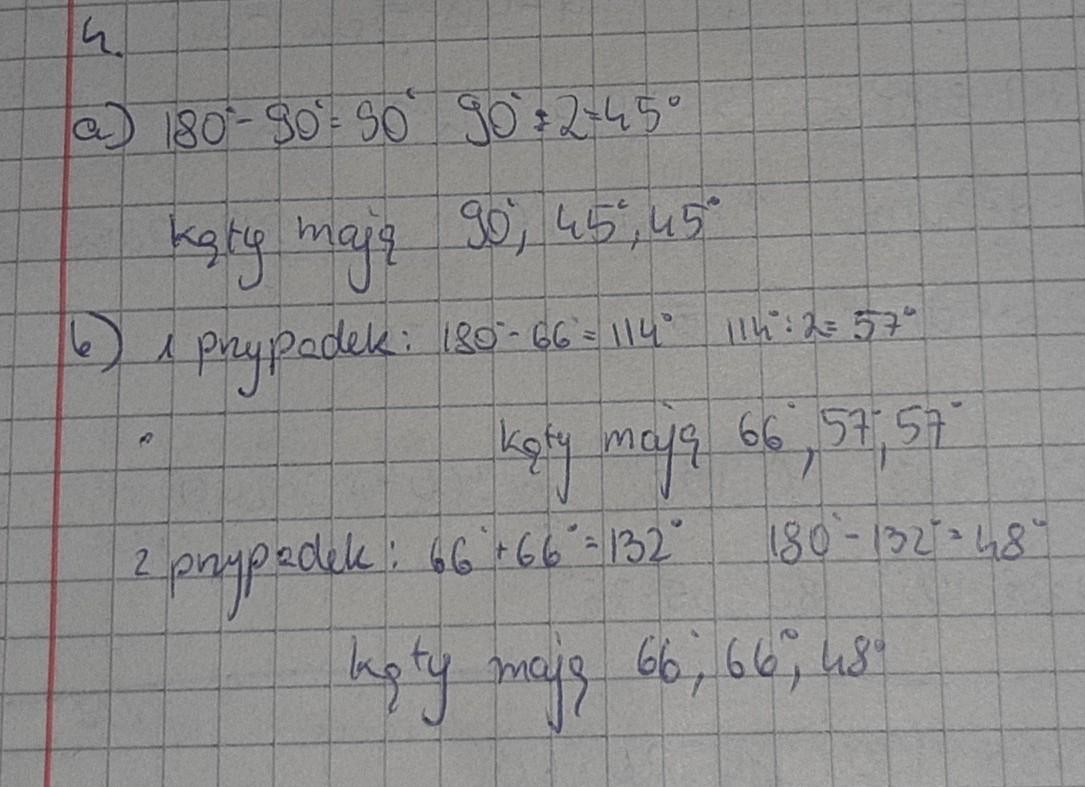 4.
a) 180° - 90° = 90° 90° : 2 = 45°
kąty mają 90°, 45°, 45°
b) 1 przypadek: 180° - 66° = 114° 114° : 2 = 57°
kąty mają 66°, 57°, 57°
2 przypadek: 66° + 66° = 132° 180° - 132° = 48°
kąty mają 66°, 66°, 48°